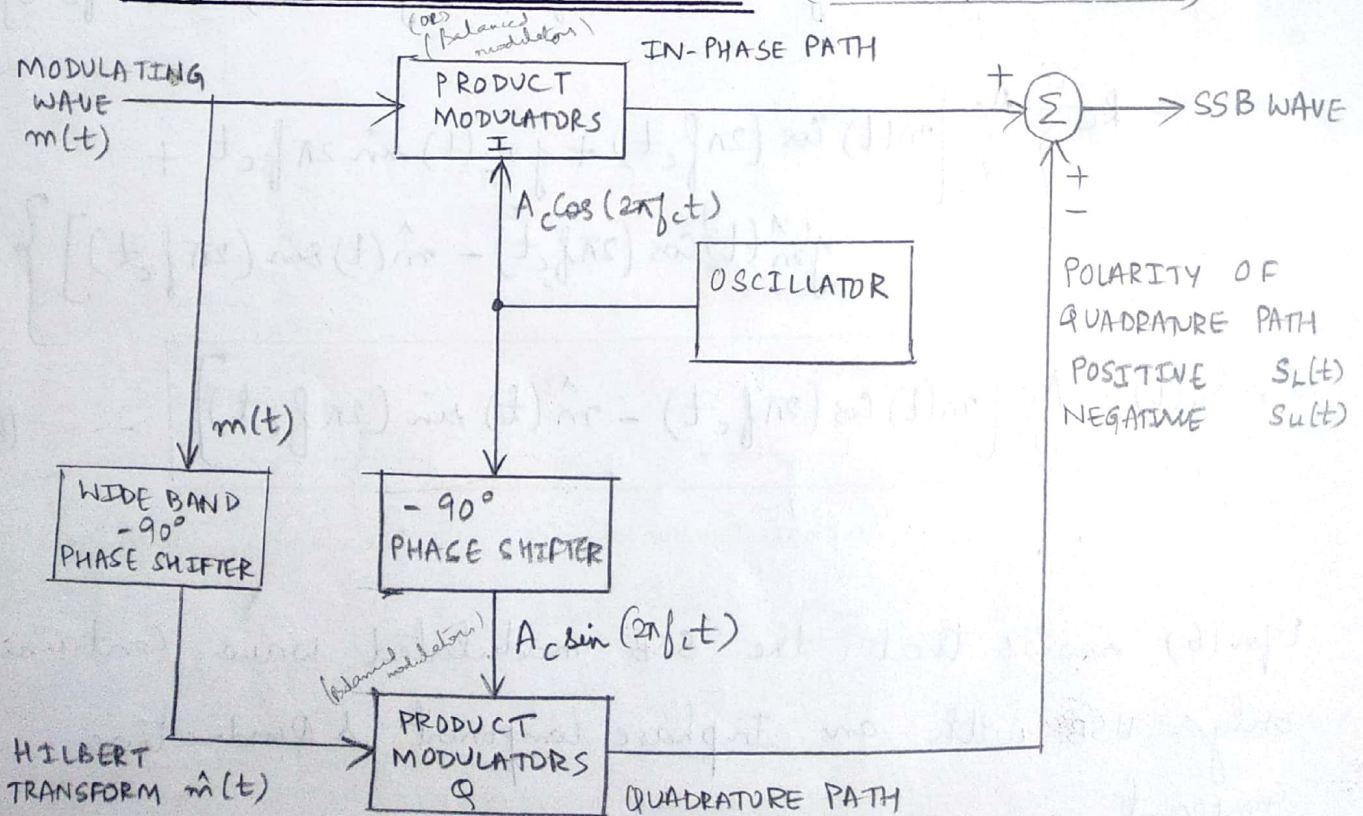 (OR)
(Balanced
modulators)
IN-PHASE PATH
MODULATING
WAVE
m(t)
PRODUCT
MODULATORS
I
+
Σ
SSB WAVE
+
-
A_c Cos (2πf_c t)
OSCILLATOR
POLARITY OF
QUADRATURE PATH
POSITIVE S_L(t)
NEGATIVE S_u(t)
m(t)
WIDE BAND
-90°
PHASE SHIFTER
- 90°
PHASE SHIFTER
A_c sin (2πf_c t)
(Balanced
modulators)
PRODUCT
MODULATORS
Q
HILBERT
TRANSFORM m̂(t)
QUADRATURE PATH